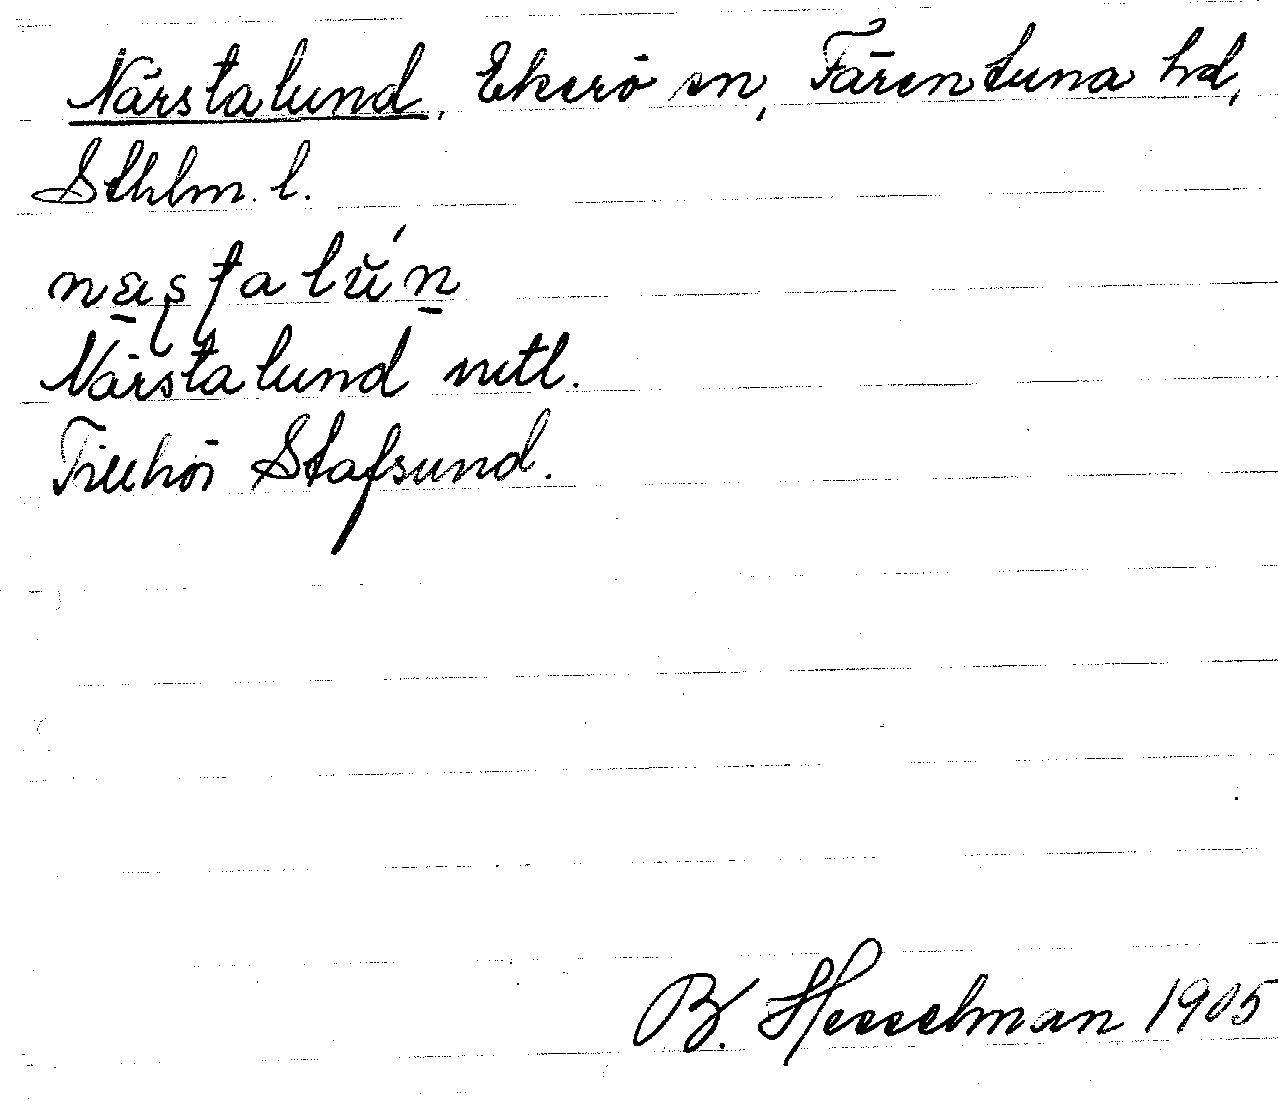 Närstalund, Ekerö sn, Färentuna hd,
Sthlm. l.
Närstalund mtl.
Tillhör Stafsund.
B. Hesselman 1905